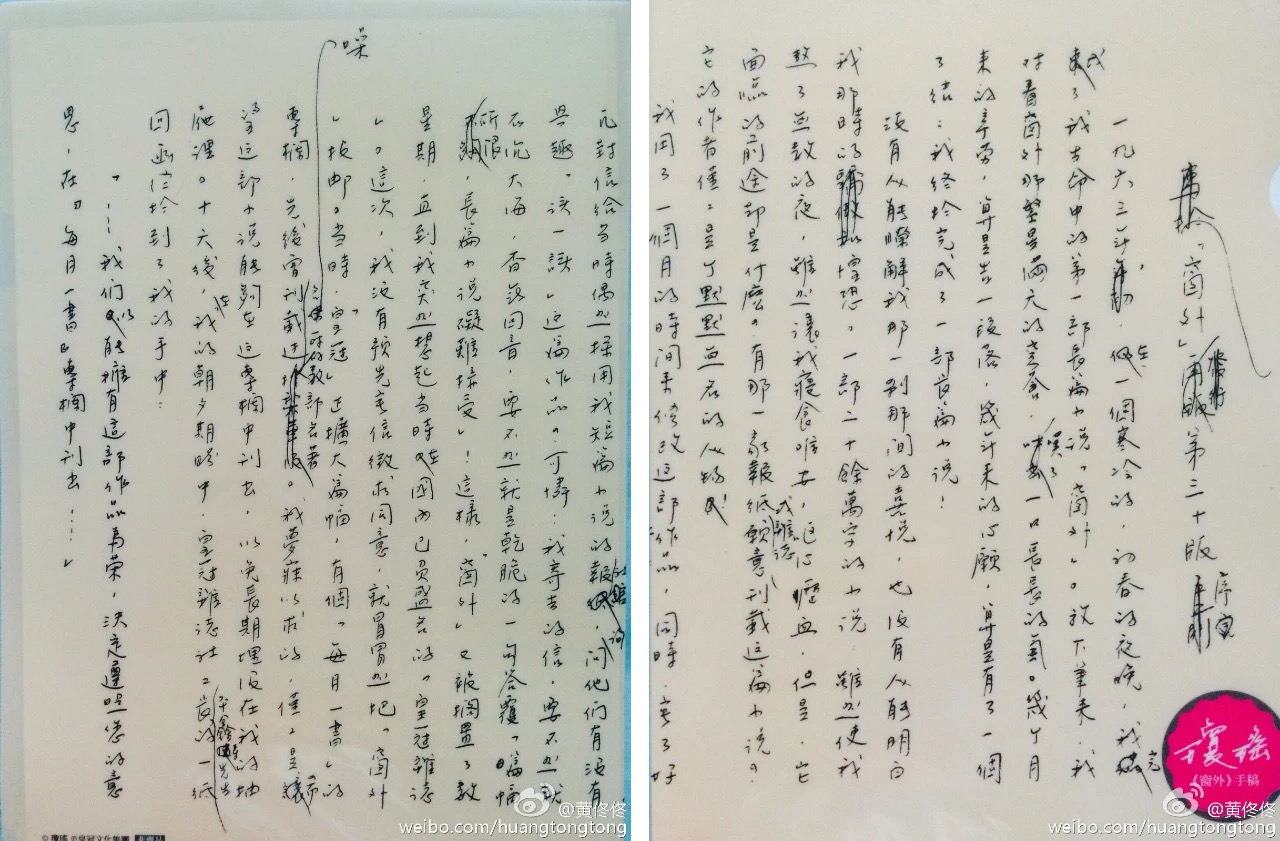 「窗外」第三十版序
一九六三年,在一個寒冷的,初春的夜晚,我完
成了我生命中的第一部長篇小說「窗外」。放下筆來,我
對着窗外那整是雨天的蒼穹,嘆了一口長長的氣。幾個月
來的辛勞,算是告一段落,幾年來的心願,算是有了一個
了結:我終於完成了一部長篇小說!
沒有人能瞭解我那一剎那間的喜悅,也沒有人能明白
我那時的惶恐。一部二十餘萬字的小說,雖然使我
熬了無數的夜,雖然讓我寢食難安,嘔心瀝血,但是,它
面臨的前途卻是什麼?有那一家報紙或雜誌願意刊載這篇小說?
它的作者僅僅是個默默無名的人物!
我用了一個月的時間來修改這部作品,同時,寫了好
幾封信給當時偶然採用我短篇小說的報館,詢問他們有沒有
興趣「談一談」這篇作品。可憐:我寄去的信,要不然就
石沉大海,杳無回音,要不然就是乾脆的一句答覆「篇幅
所限,長篇小說礙難接受」!這樣,「窗外」又被擱置了數
星期,直到我突然想起當時在國內已負盛名的「皇冠雜誌
」。這次,我沒有預先去信徵求同意,就冒冒然把「窗外
」投郵。當時,「皇冠」正擴大篇幅,有個「每月一書」的
專欄,先後曾刊載過好幾部名著。我夢寐以求的,僅僅是希
望這部小說能夠在這專欄中刊出,以免長期埋沒在我的抽
屜裡。十天後,我的朝夕期盼中,皇冠雜誌社平鑫濤先生的一紙
回函終於到了我的手中:
「……我們以能擁有這部作品為榮,決定遵照您的意
思,在『每月一書』專欄中刊出……」
瓊瑤
《窗外》手稿
© 瓊瑤 皇冠文化集團
@黄佟佟
weibo.com/huangtongtong
@黄佟佟
weibo.com/huangtongtong